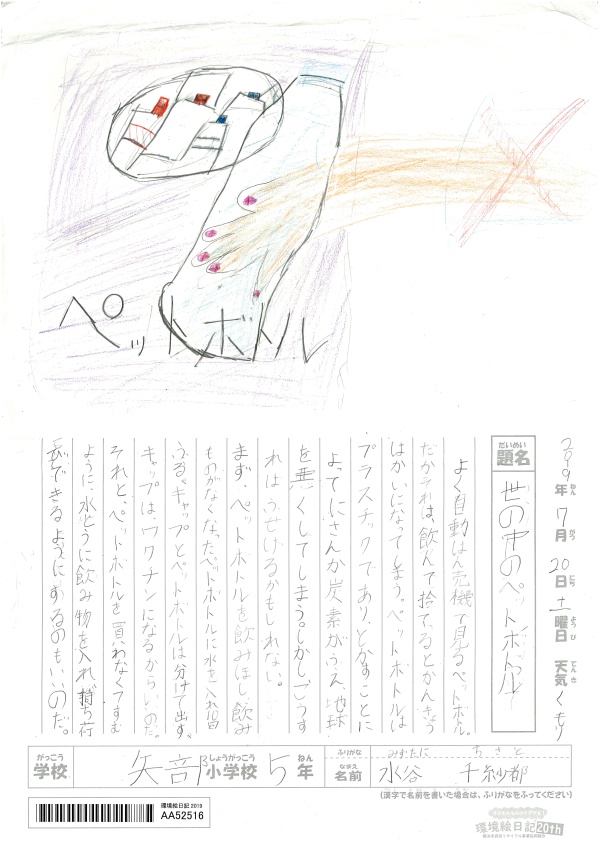 ペットボトル
2019年7月20日土曜日 天気くもり
だいめい
題名 世の中のペットボトル
よく自動はん売機で見るペットボトル。
だがそれは、飲んで捨てるとかんきょう
はかいになってしまう。ペットボトルは
プラスチックであり、とかすことに
よってにさんか炭素がふえ、地球
を悪くしてしまう。しかしこうす
ればふせげるかもしれない。
まず、ペットボトルを飲みほし、飲み
ものがなくなったペットボトルに水を入れ
ふる。キャップとペットボトルは分けて出す。
キャップはワクチンになるからいいのだ。
それと、ペットボトルを買わなくてすむ
ように、水とうに飲み物を入れ、持ち荷
できるようにするのもいいのだ。
がっこう しょうがっこう ねん
学校 矢部小学校 5年
ふりがな みずたに ちさと
なまえ
名前 水谷 千紗都
(漢字で名前を書いた場合は、ふりがなをふってください)
環境絵日記2019
AA52516
環境絵日記20th